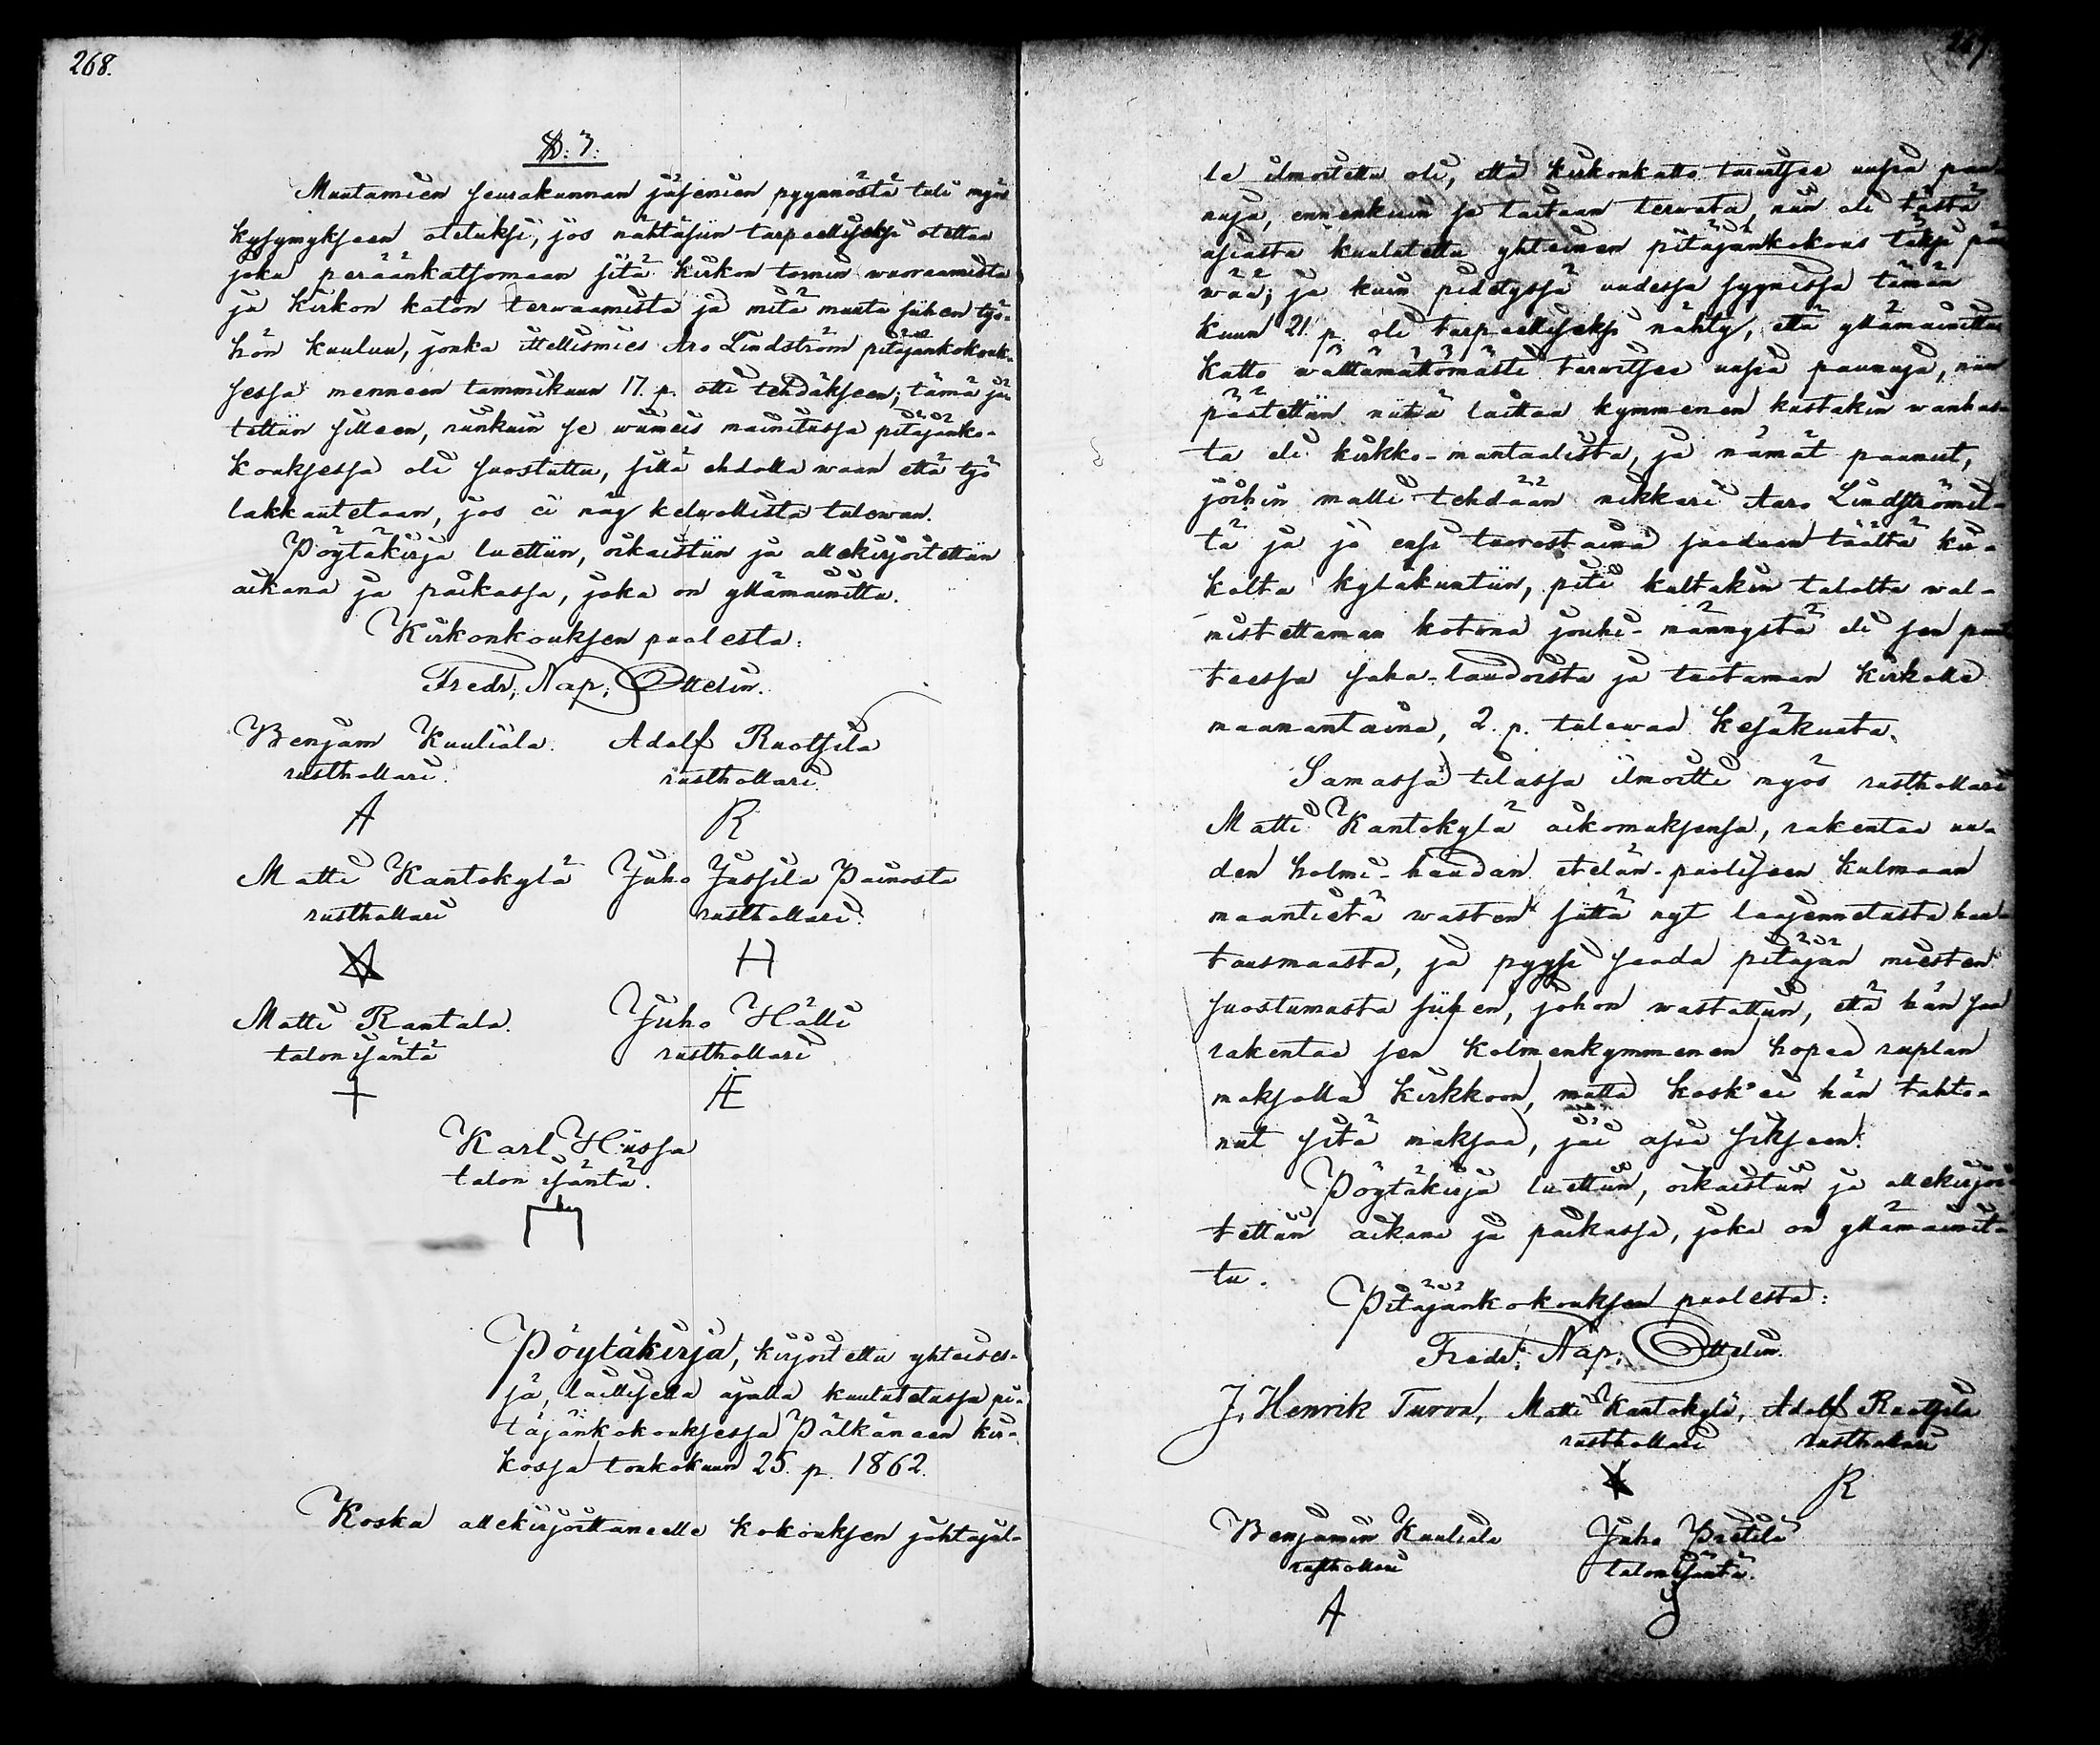 268.
§. 3.
Muutamien seurakunnan jäsenien pyynnöstä tuli myös
kysymykseen otetuksi, jos nähtäsiin tarpeelliseksi otettaa
joku peräänkatsomaan sitä kirkon tornin wuoraamista
ja kirkon katon terwaamista ja mitä muuta siihen työ-
hön kuuluu, jonka itellismies Aro Lindström pitäjänkokouk-
sessa menneen tammikuun 17. p. otti tehdäkseen; tämä jä-
tettiin silleen, niinkuin se wiimeis mainitussa pitäjänko-
kouksessa oli suostuttu, sillä ehdolla waan että työ
lakkautetaan, jos ei näy kelwollista tulewan.
Pöytäkirja luettiin, oikaistiin ja allekirjoitettiin
aikana ja paikassa, joka on yllämainittu.
Kirkonkouksen puolesta:
Fredr. Nap. Ottelin.
Benjam Kuuliala. Adolf Ruotsila
rusthollari. rusthollari
A R
Matti Kantokylä Juho Jussila Painosta
rusthollari rusthollari.
H
Matti Rantala. Juho Hälli
talon isäntä rusthollari
+ Æ
Karl Hiissa
talon isäntä.
Pöytäkirja, kirjoitettu yhteises-
sä, laillisella ajalla kuulutetussa pi-
täjänkokouksessa Pälkäneen kir-
kossa toukokuun 25. p. 1862.
Koska allekirjoittaneelle kokouksen johtajal-
le ilmoitettu oli, että kirkonkatto tarwitsee uusia paa-
nuja, ennenkuin se taitaan terwata, niin oli tästä
asiasta kuulutettu yhteinen pitäjänkokous täksi päi-
wää; ja kuin pidetyssä uudessa syynissä tämän
kuun 21. p. oli tarpeelliseksi nähty, että yllämainittu
katto wälttämättömästi tarwitsee uusia paanuja, niin
päätettiin niitä laittaa kymmenen kustakin wanhas-
ta eli kirkko-mantaalista, ja nämät paanut,
joihin malli tehdään nikkari Aaro Lindströmil-
tä ja jo ensi tuorestaina saadaan täältä kir-
kolta kyläkuntiin, piti kultakin talolta wal-
mistettaman kotona jouhi-männystä eli sen puut-
teessa saha-laudoista ja tuotaman kirkolle
maanantaina, 2. p. tulewaa Kesäkuuta.
Samassa tilassa ilmoitti myös rusthollari
Matti Kantokylä aikomuksensa, rakentaa uu-
den holmi-haudan etelän-puoliseen kulmaan
maantietä wasten siittä nyt laajennetusta hau-
tausmaasta, ja pyysi saada pitäjän miesten
suostumusta siihen, johon wastattiin, että hän saa
rakentaa sen kolmenkymmenen hopea ruplan
maksolla kirkkoon, mutta kosk'ei hän tahto-
nut sitä maksaa, jäi asia sikseen.
Pöytäkirja luettiin, oikaistiin ja allekirjoi-
tettiin aikana ja paikassa, joka on yllämainit-
tu.
Pitäjänkokouksen puolesta:
Fredr. Nap. Ottelin.
J. Henrik Turva, Matti Kantokylä, Adolf Ruotsila
rusthollari rusthollari
R
Benjamin Kuuliala Juho Prettilä
rusthollari talon isäntä.
A